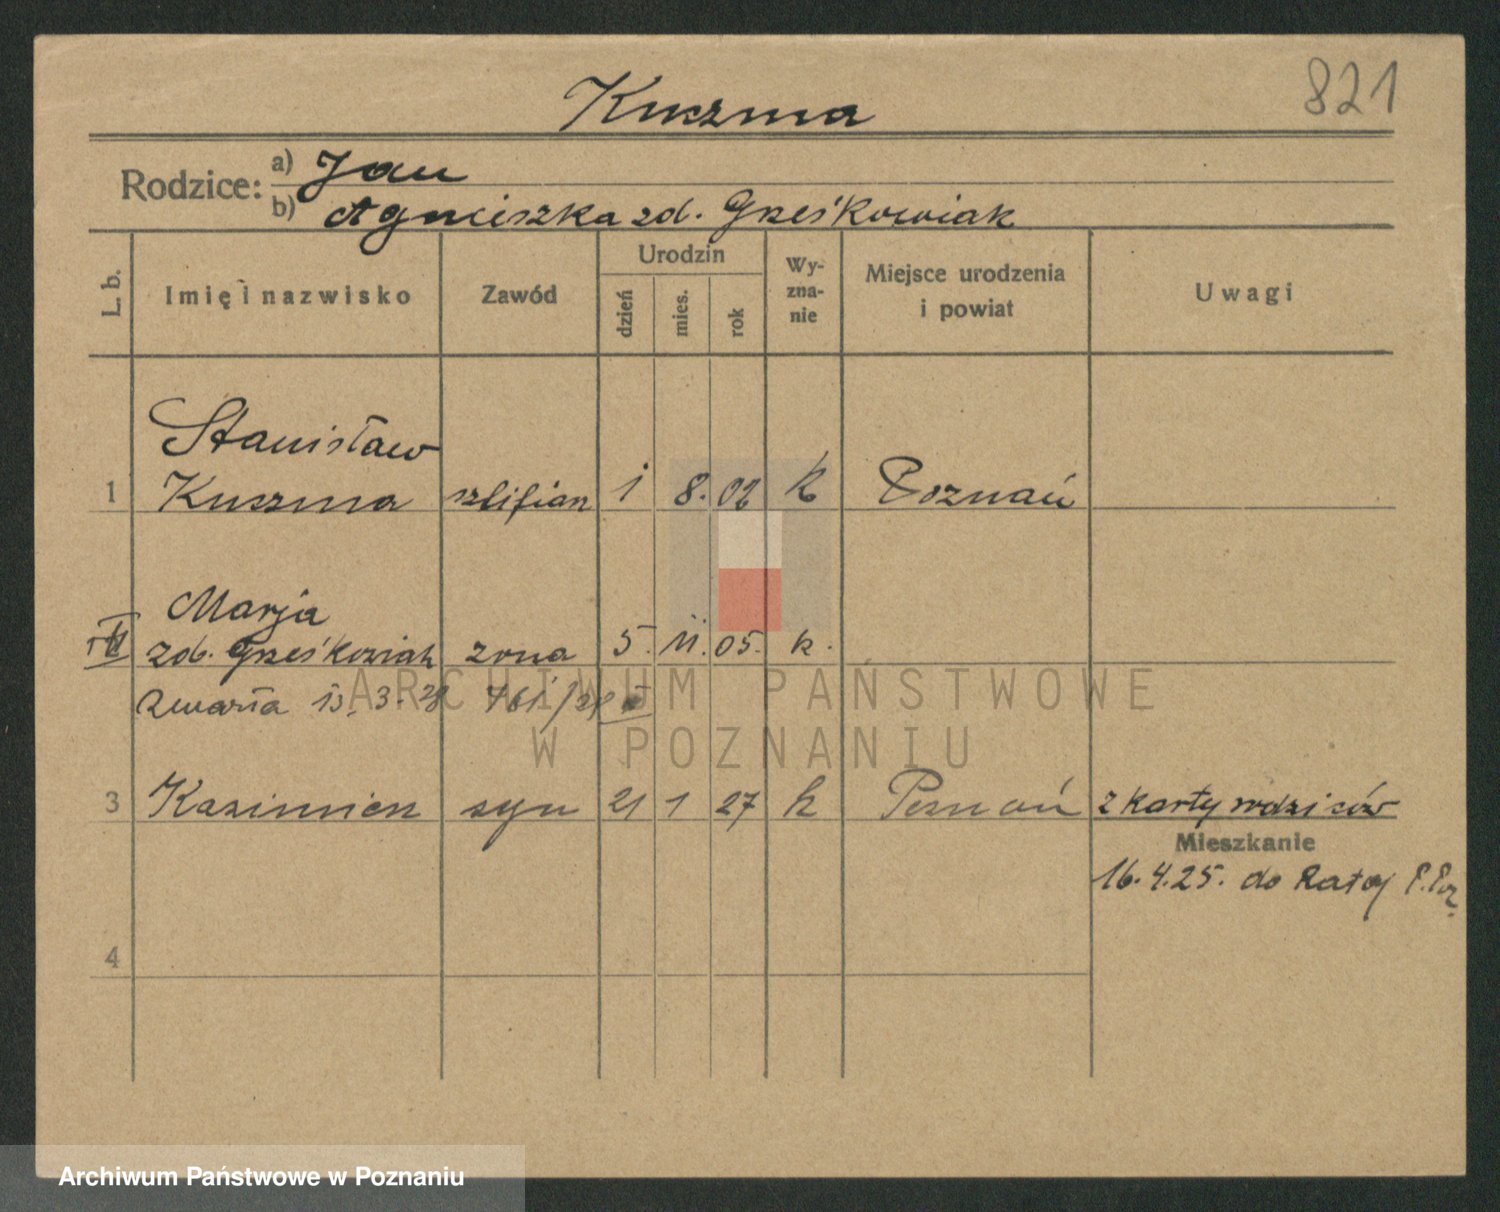 821
Kuszma
Rodzice: a) Jan
b) Agnieszka zd. Grześkowiak
L. b.
Imię i nazwisko
Zawód
Urodzin
dzień
mies.
rok
Wy-
zna-
nie
Miejsce urodzenia
i powiat
Uwagi
Stanisław
1 Kuszma szlifierz 1 8. 02 k Poznań
Marja
zd. Grześkowiak żona 5. 11. 05. k.
Zmarła 13. 3. 28 761/28
3 Kazimierz syn 21 1 27 k Poznań z karty rodziców
Mieszkanie
16. 4. 25. do Rataj
4
ARCHIWUM PAŃSTWOWE
W POZNANIU
Archiwum Państwowe w Poznaniu